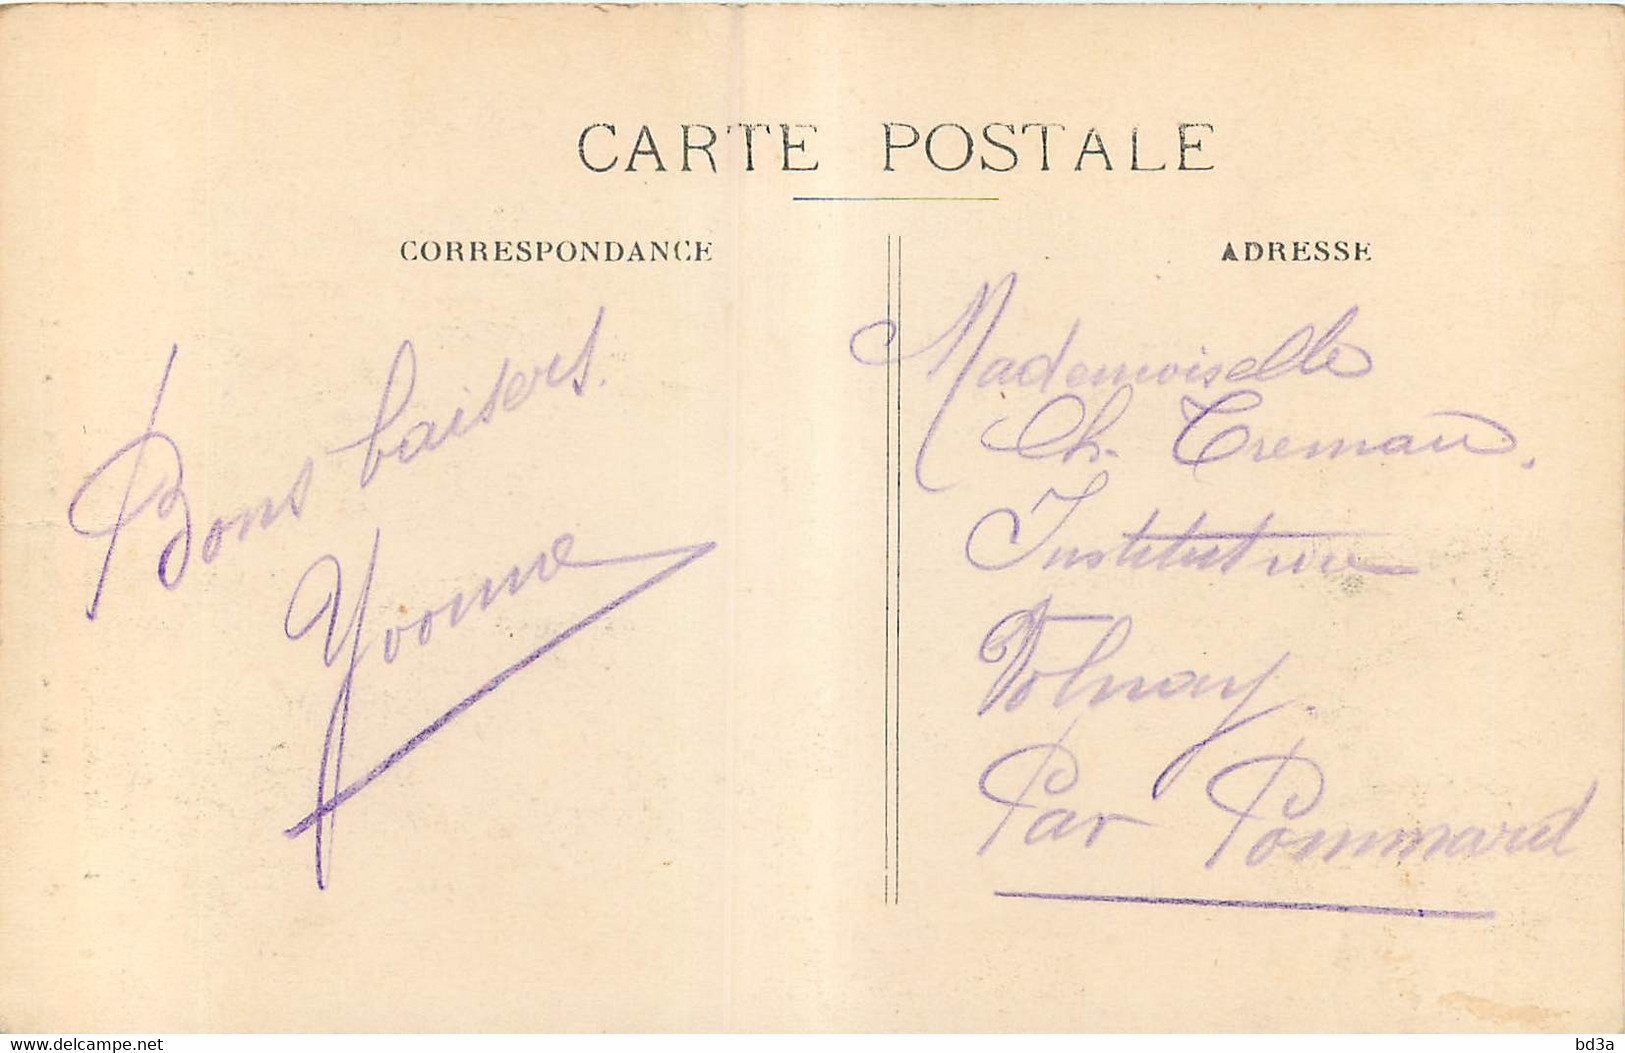 CARTE POSTALE
CORRESPONDANCE
Bons baisers.
Yvonne
ADRESSE
Mademoiselle
Ch. Tremau.
Institutrice
Volnay.
Par Pommard
www.delcampe.net
bd3a